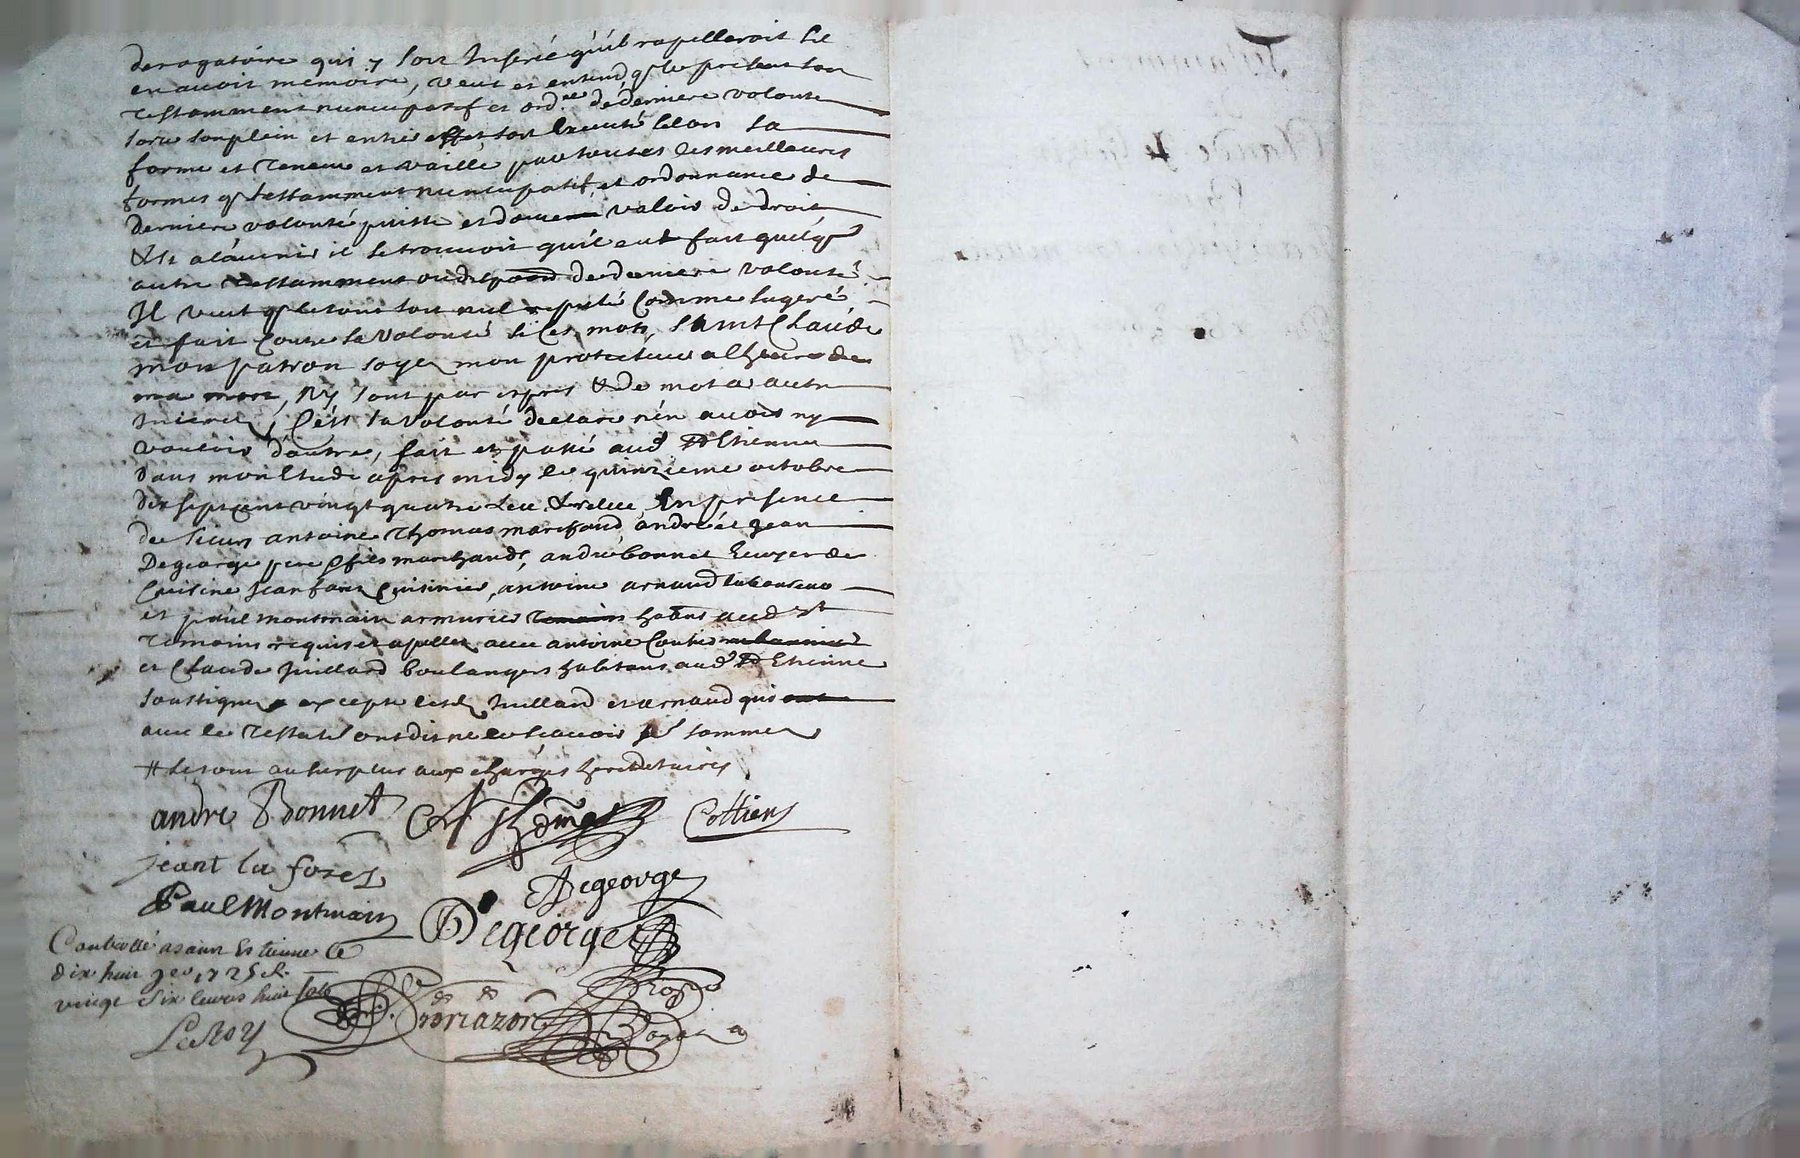 derogatoire qui y soit Inseré qu'il rapelleroit sil
en avoit mémoire, veut et entend q. le present son
testamment nuncupatif et ord.ce de derniere volonte
sorte son plein et entier effet, soit Executé selon sa
forme et teneur et vaille par toutes les meilleures
formes q. testamment nuncupatif, et ordonnance de
derniere volonté puisse et doive valoir de droit
& si a l'avenir il se trouvoit qu'il eut fait quelq.
autre testamment ou de derniere volonté
Il veut q. le tout soit nul reputé comme sugeré
et fait contre sa volonté si ces mots, saint Claude
mon patron soyes mon protecteur a l'heure de
ma mort, ny sont par expres & de mot a autre
Inserés, C'est sa volonté declare n'en avoir ny
vouloir d'autre, fait et passé aud. St Etienne
dans mon Etude apres midy le quinzieme octobre
dix sept cent vingt quatre Leu & relleu En presence
de sieurs antoine Thomas marchand, andré et jean
Degeorge pere & fils marchands, andré bonnet Ecuyer de
Cuisine Cuisinier, antoine arnaud laboureur
et paul montmain armurier habitans aud.
temoins requis et apellez avec antoine
et Claude Juillard boulangers habitans aud. St Etienne
soussignez excepté lesd. Juillard et arnaud qui
avec le testat.r ont dit ne le scavoir de ce sommes
# le tout au surplus aux charges hereditaires
andre Bonnet A Thomas Cottier
jeant la forest Degeorge
Paul Montmain Degeorge
Controllé a saint Estienne le
dix huit 1725 R.
vingt six livres huit sols
LeRoy